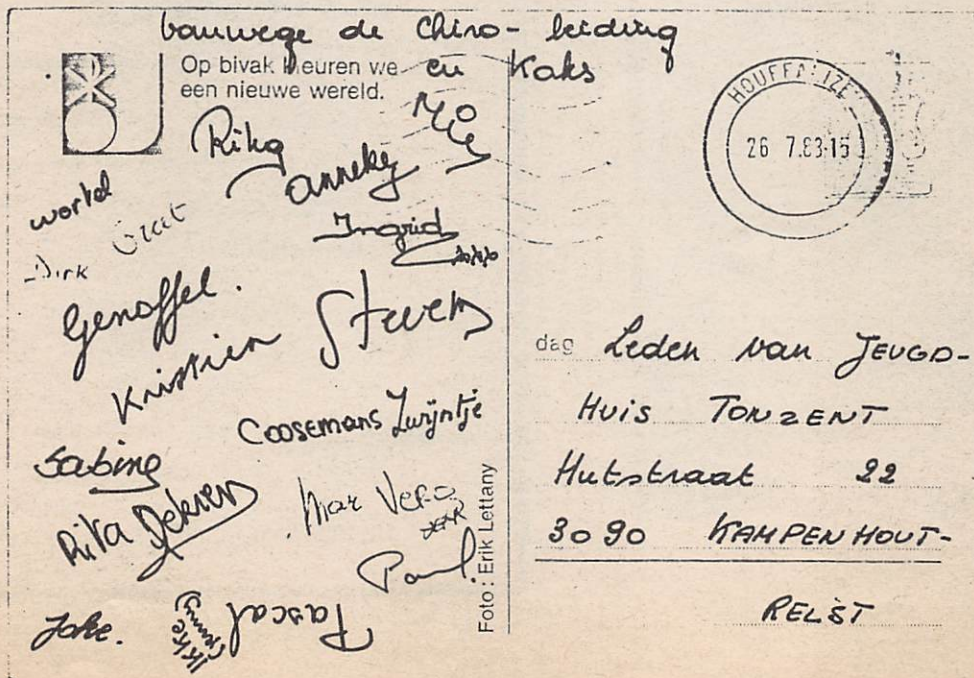 vanwege de Chiro-leiding
en Kaks
Op bivak kleuren we
een nieuwe wereld.
Rika
Mie
Anneke
wortel
Ingrid
Dirk
Genoffel.
Steven
Kristien
Coosemans Zwijntje
Sabine
Mar Vero
Rita
Paul.
Joke.
IKKE
Pascal
Foto : Erik Lettany
HOUFFALIZE
26 7.83-15
dag Leden van JEUGD-
HUIS TONZENT
Hutstraat 22
3090 KAMPENHOUT-
RELST